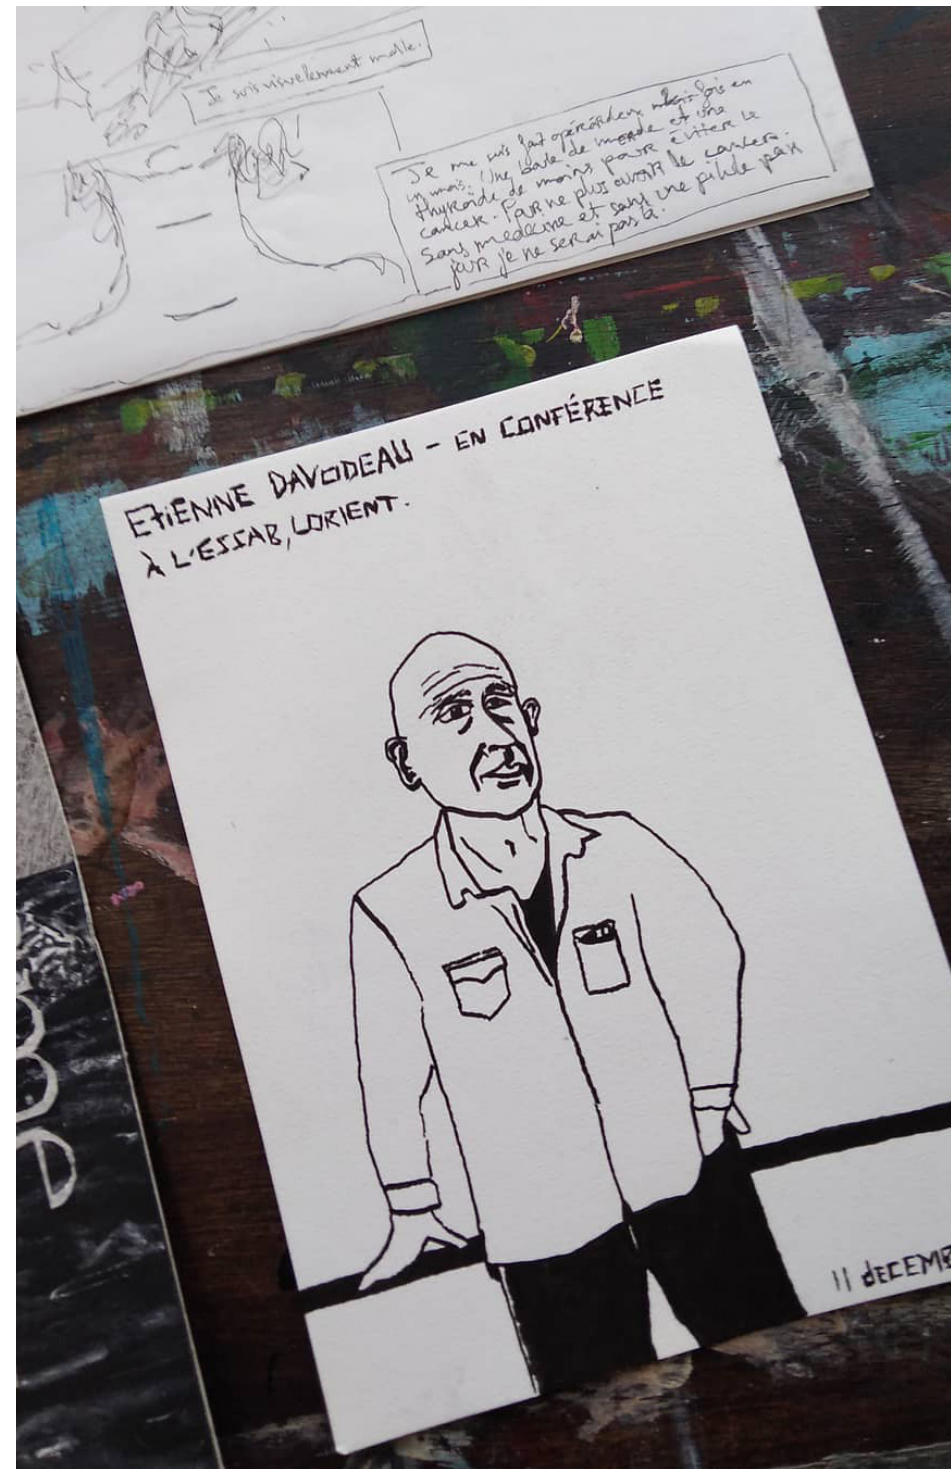 Je suis visuellement malle.
Je me suis fait opérer deux fois en
un mois. Une boule de merde et une
thyroïde de moins pour éviter le
cancer. Pour ne plus avoir le cancer.
Sans médecine et sans une pilule par
jour je ne serai pas là.
ETIENNE DAVODEAU - EN CONFÉRENCE
À L'ESSAB, LORIENT.
11 dECEMB